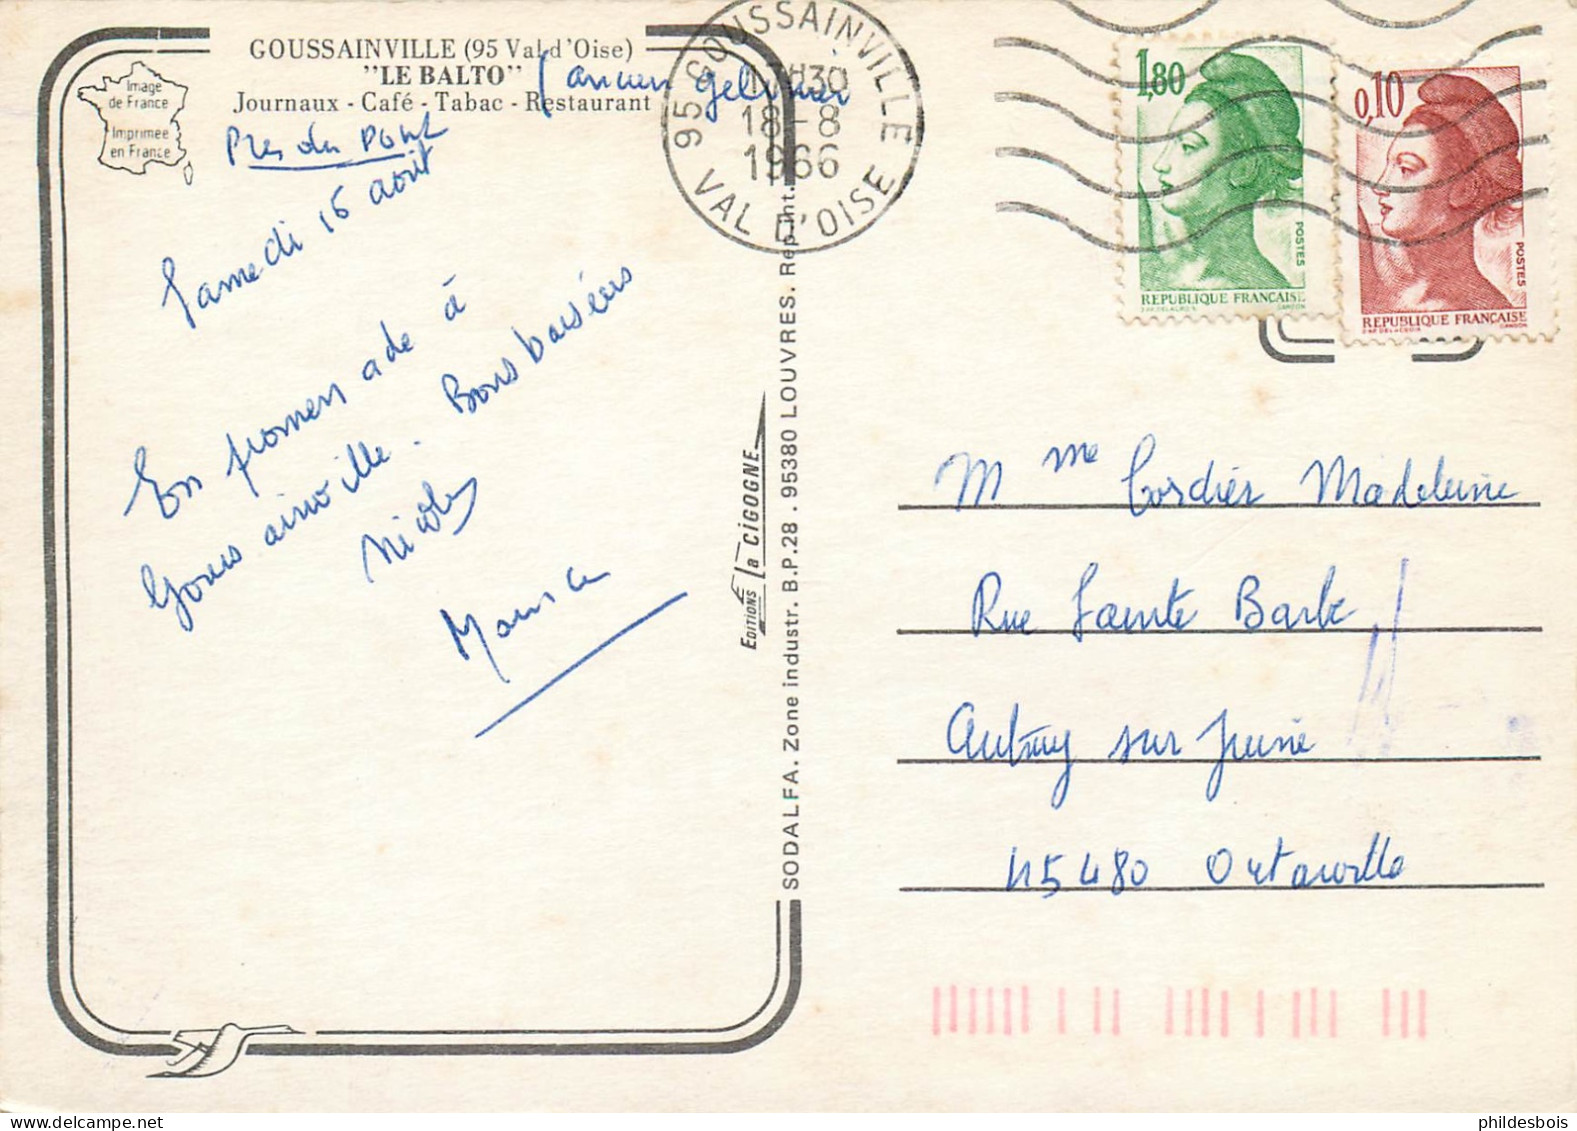 GOUSSAINVILLE (95 Val d'Oise)
"LE BALTO"
Journaux - Café - Tabac - Restaurant
Image
de France
Imprimée
en France
(ancien
Près du Pont
Samedi 16 août
En promenade à
Goussainville. Bons baisers
Nicolas
95 GOUSSAINVILLE
17H30
18-8
1966
VAL D'OISE
1,80
POSTES
REPUBLIQUE FRANÇAISE
D'AP. DELACROIX GANDON
0,10
POSTES
REPUBLIQUE FRANÇAISE
D'AP. DELACROIX GANDON
EDITIONS la CIGOGNE
SODALFA. Zone industr. B.P.28 . 95380 LOUVRES. Rep. Int.
Mme Cordier Madeleine
Rue Sainte Barbe
Autruy sur Juine
45480 Outarville
phildesbois